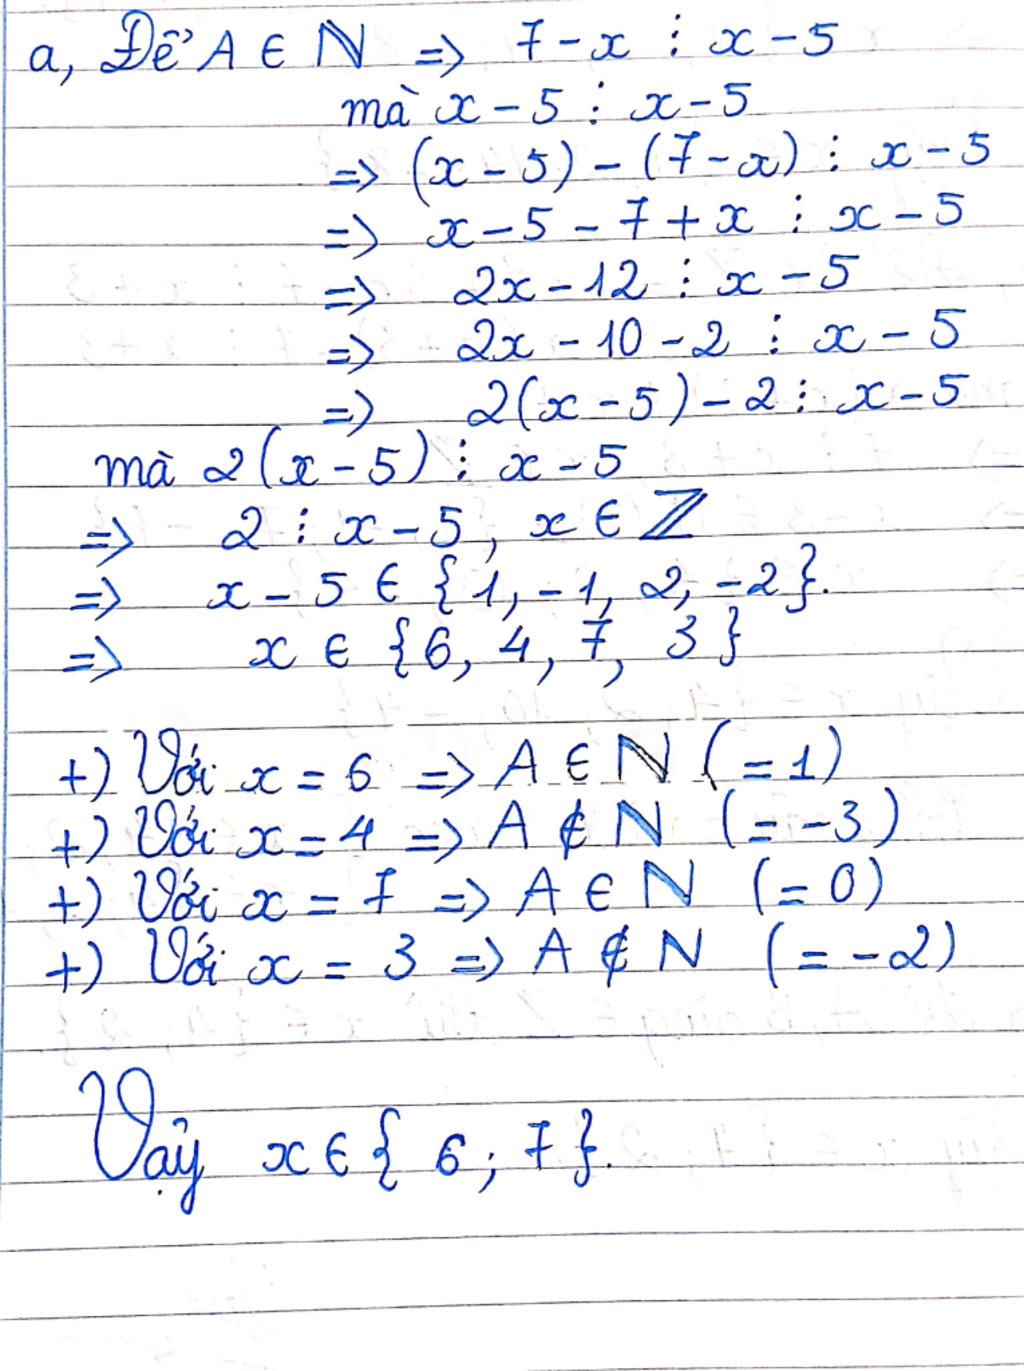 a, Để A ∈ ℕ => 7 - x ⋮ x - 5
mà x - 5 ⋮ x - 5
=> (x - 5) - (7 - x) ⋮ x - 5
=> x - 5 - 7 + x ⋮ x - 5
=> 2x - 12 ⋮ x - 5
=> 2x - 10 - 2 ⋮ x - 5
=> 2(x - 5) - 2 ⋮ x - 5
mà 2(x - 5) ⋮ x - 5
=> 2 ⋮ x - 5, x ∈ ℤ
=> x - 5 ∈ {1, -1, 2, -2}.
=> x ∈ {6, 4, 7, 3}
+) Với x = 6 => A ∈ ℕ (= 1)
+) Với x = 4 => A ∉ ℕ (= -3)
+) Với x = 7 => A ∈ ℕ (= 0)
+) Với x = 3 => A ∉ ℕ (= -2)
Vậy x ∈ { 6 ; 7 }.